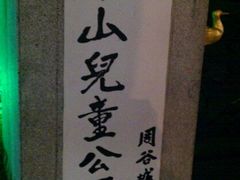 山兒童公
周谷城